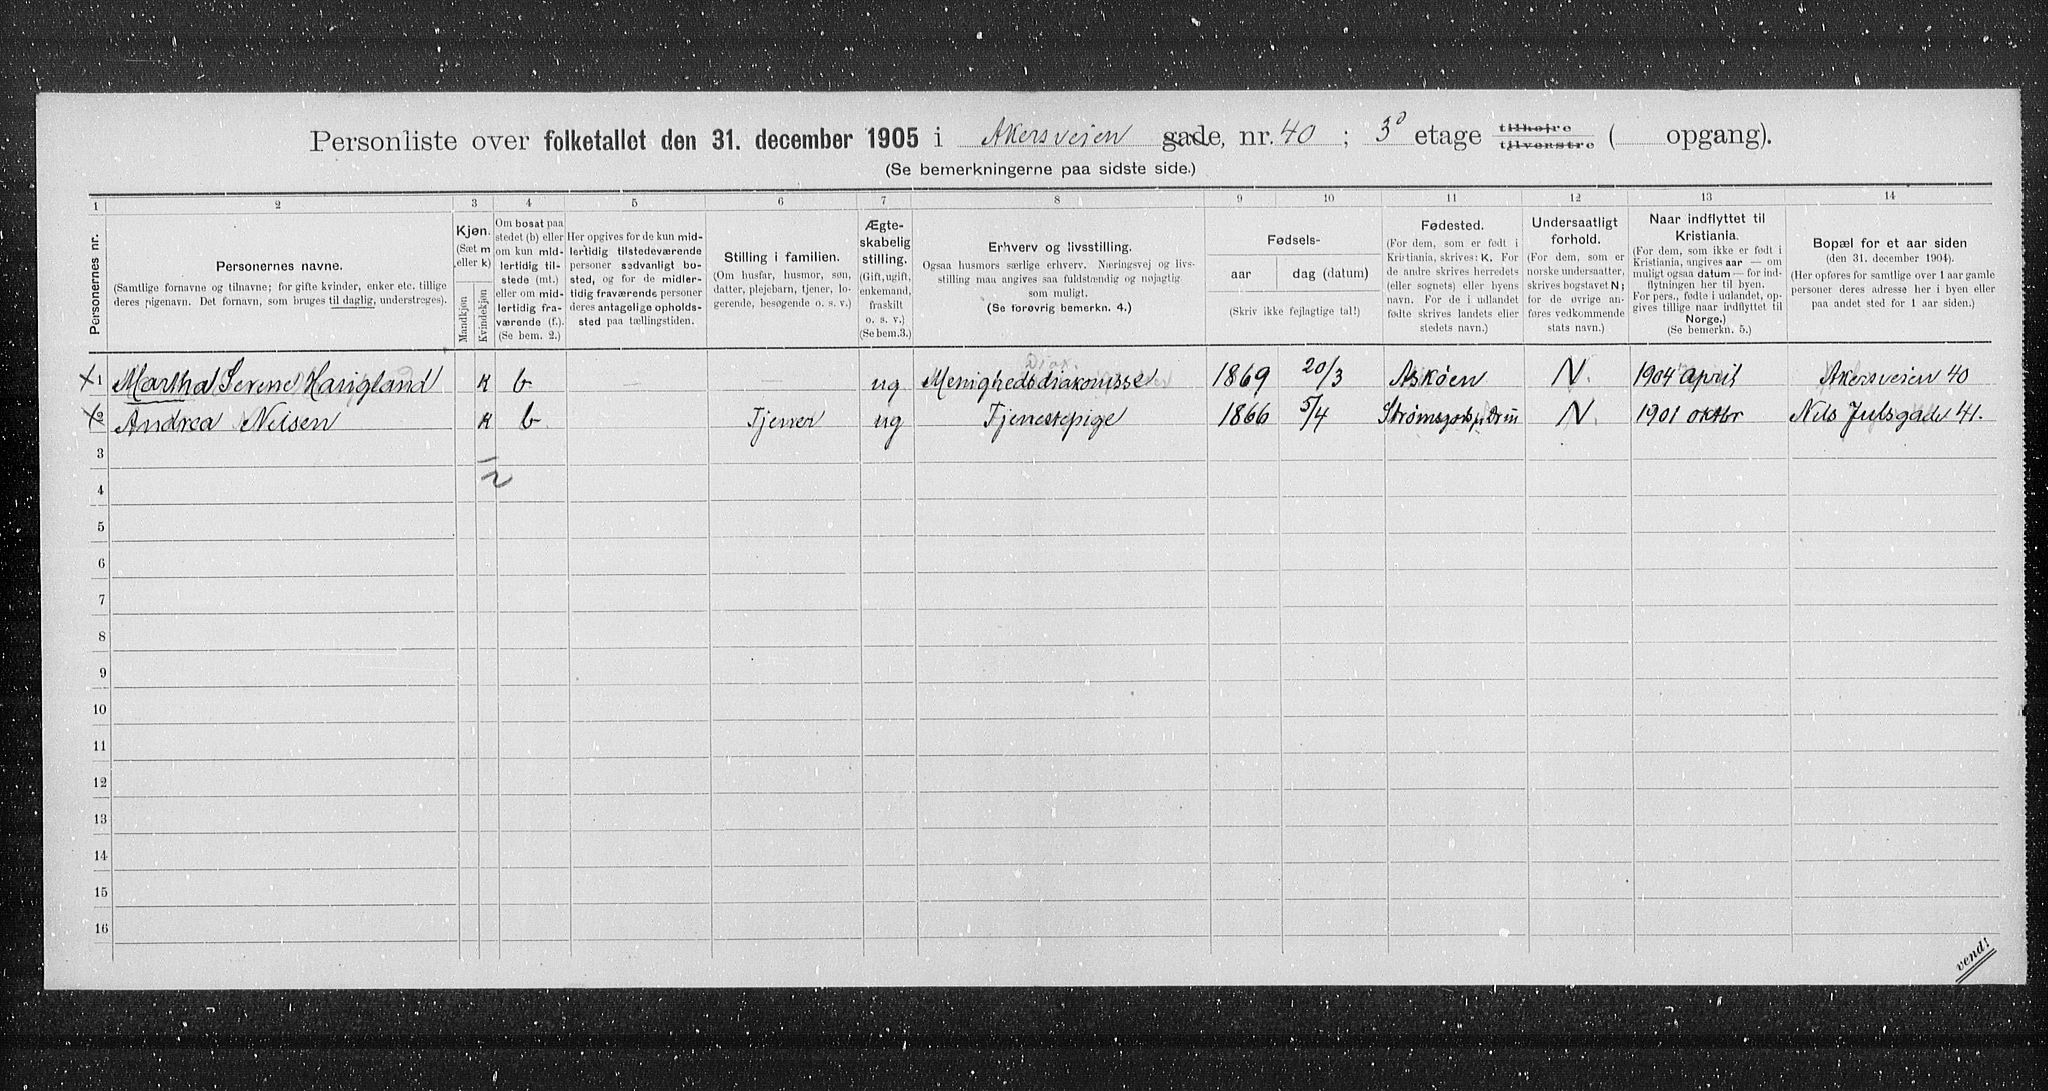 Personliste over folketallet den 31. december 1905 i Akersveien gade, nr. 40 ; 3⁰ etage tilhøire tilvenstre ( opgang).
(Se bemerkningerne paa sidste side.)
1 2 3 4 5 6 7 8 9 10 11 12 13 14
Personernes nr.
Personernes navne.
(Samtlige fornavne og tilnavne; for gifte kvinder, enker etc. tillige
deres pigenavn. Det fornavn, som bruges til daglig, understreges).
Kjøn.
(Sæt m
eller k)
Mandkjøn
Kvindekjøn
Om bosat paa
stedet (b) eller
om kun mid-
lertidig til-
stede (mt.)
eller om mid-
lertidig fra-
værende (f.).
(Se bem. 2.)
Her opgives for de kun mid-
lertidig tilstedeværende
personer sædvanligt bo-
sted, og for de midler-
tidig fraværende personer
deres antagelige opholds-
sted paa tællingstiden.
Stilling i familien.
(Om husfar, husmor, søn,
datter, plejebarn, tjener, lo-
gerende, besøgende o. s. v.)
Ægte-
skabelig
stilling.
(Gift, ugift,
enkemand,
fraskilt
o. s. v.)
(Se bem. 3.)
Erhverv og livsstilling.
Ogsaa husmors særlige erhverv. Næringsvej og livs-
stilling maa angives saa fuldstændig og nøjagtig
som muligt.
(Se forøvrig bemerkn. 4.)
Fødsels-
aar
dag (datum)
(Skriv ikke fejlagtige tal!)
Fødested.
(For dem, som er født i
Kristiania, skrives: K. For
de andre skrives herredets
(eller sognets) eller byens
navn. For de i udlandet
fødte skrives landets eller
stedets navn.)
Undersaatligt
forhold.
(For dem, som er
norske undersaatter,
skrives bogstavet N;
for de øvrige an-
føres vedkommende
stats navn.)
Naar indflyttet til
Kristiania.
(For dem, som ikke er født i
Kristiania, angives aar — om
muligt ogsaa datum — for ind-
flytningen her til byen.
For pers., fødte i udlandet, op-
gives tillige naar indflyttet til
Norge.)
(Se bemerkn. 5.)
Bopæl for et aar siden
(den 31. december 1904).
(Her opføres for samtlige over 1 aar gamle
personer deres adresse her i byen eller
paa andet sted for 1 aar siden.)
1 Martha Serene Haugland k b — — ug Menighedsdiakonisse 1869 20/3 Askøen N. 1904 april Akersveien 40
2 Andrea Nilsen k b Tjener ug Tjenestepige 1866 5/4 N. 1901 oktbr Nils Julsgade 41.
3
4
5
6
7
8
9
10
11
12
13
14
15
16
vend!